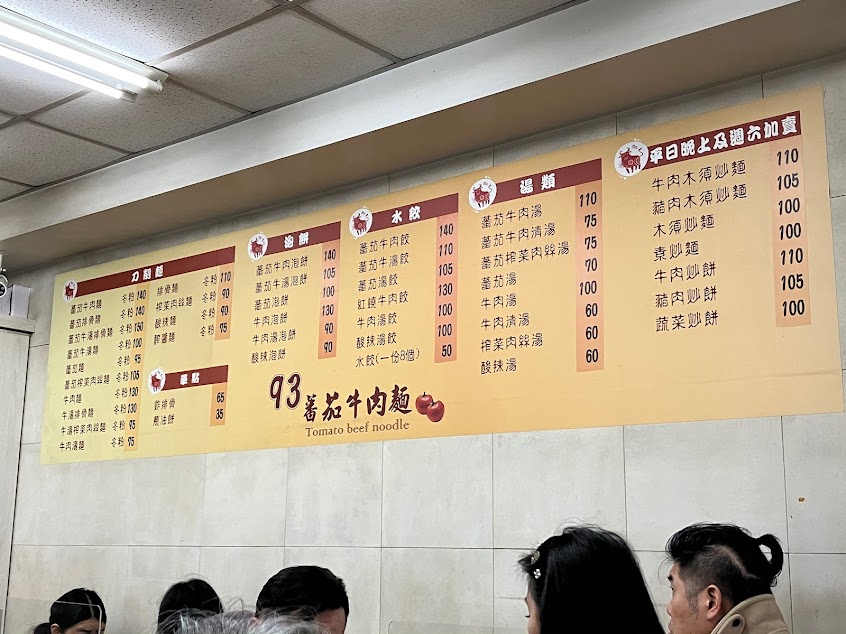 刀削麵
番茄牛肉麵 冬粉 140
番茄排骨麵 冬粉 140
番茄牛湯排骨麵 冬粉 150
番茄牛湯麵 冬粉 100
番茄麵 冬粉 95
番茄榨菜肉絲麵 冬粉 105
牛肉麵 冬粉 130
牛湯排骨麵 冬粉 130
牛湯榨菜肉絲麵 冬粉 95
牛肉湯麵 冬粉 75
排骨麵 冬粉 110
榨菜肉絲麵 冬粉 90
酸辣麵 冬粉 90
炸醬麵 冬粉 75
單點
炸排骨 65
蔥油餅 35
泡餅
蕃茄牛肉泡餅 140
蕃茄牛湯泡餅 105
蕃茄泡餅 100
牛肉泡餅 130
牛肉湯泡餅 90
酸辣泡餅 90
水餃
蕃茄牛肉餃 140
蕃茄牛湯餃 110
蕃茄湯餃 105
紅饒牛肉餃 130
牛肉湯餃 100
酸辣湯餃 100
水餃(一份8個) 50
湯類
蕃茄牛肉湯 110
蕃茄牛肉清湯 75
蕃茄榨菜肉絲湯 75
蕃茄湯 70
牛肉湯 100
牛肉清湯 60
榨菜肉絲湯 60
酸辣湯 60
平日晚上及週六加賣
牛肉木須炒麵 110
豬肉木須炒麵 105
木須炒麵 100
素炒麵 100
牛肉炒餅 110
豬肉炒餅 105
蔬菜炒餅 100
93蕃茄牛肉麵
Tomato beef noodle